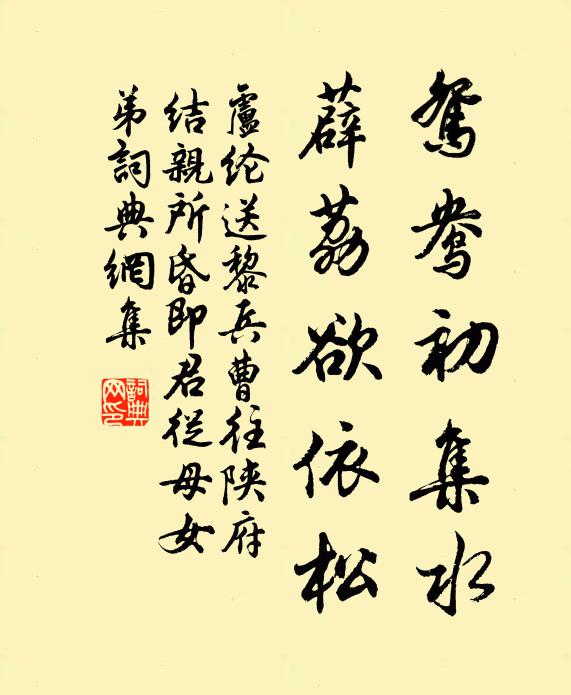 鴛鴦初集水
薜荔欲依松
盧纶送黎兵曹往陕府
结親所昏即君從母女
弟詞典網集
詞典网印